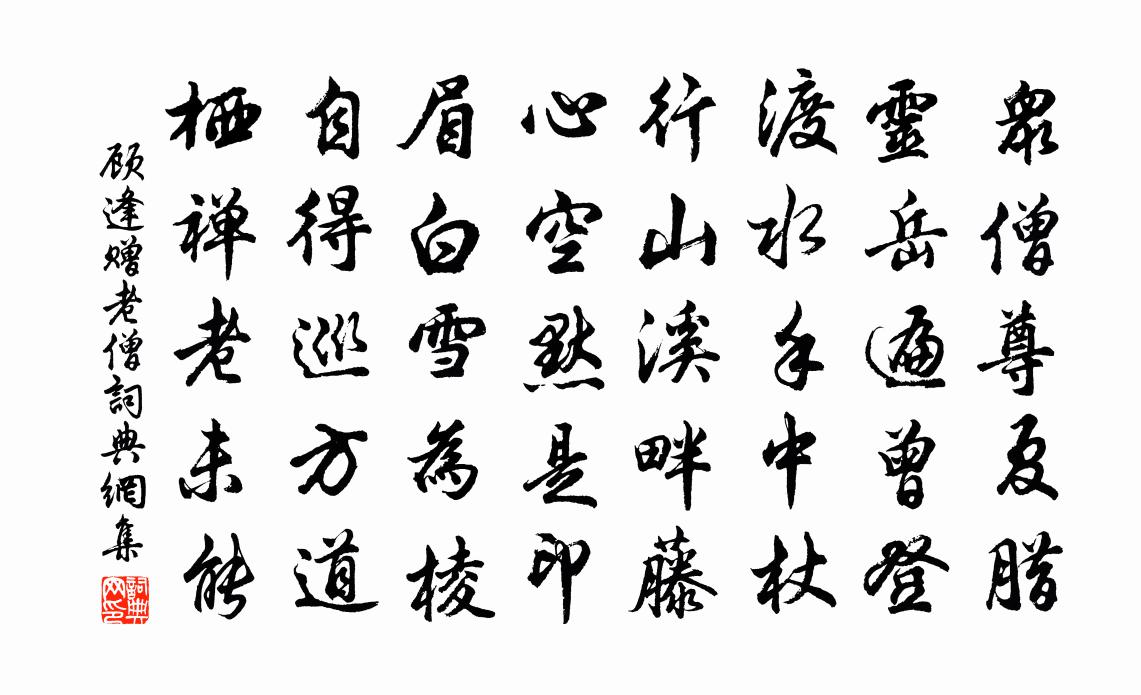 眾僧尊夏腊
靈岳遍曾登
渡水手中杖
行山溪畔藤
心空默是印
眉白雪為棱
自得巡方道
栖禅老未能
顾逢赠老僧詞典網集
詞典网印